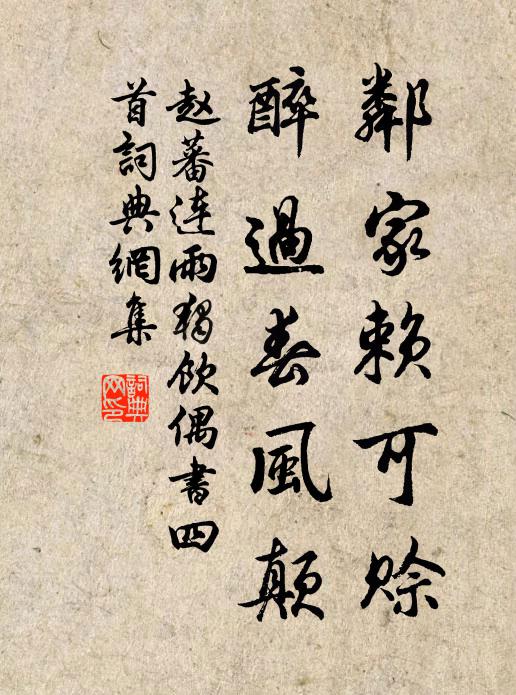 鄰家賴可賒
醉過春風顛
赵蕃連雨獨飲偶書四
首詞典網集
詞典
网印